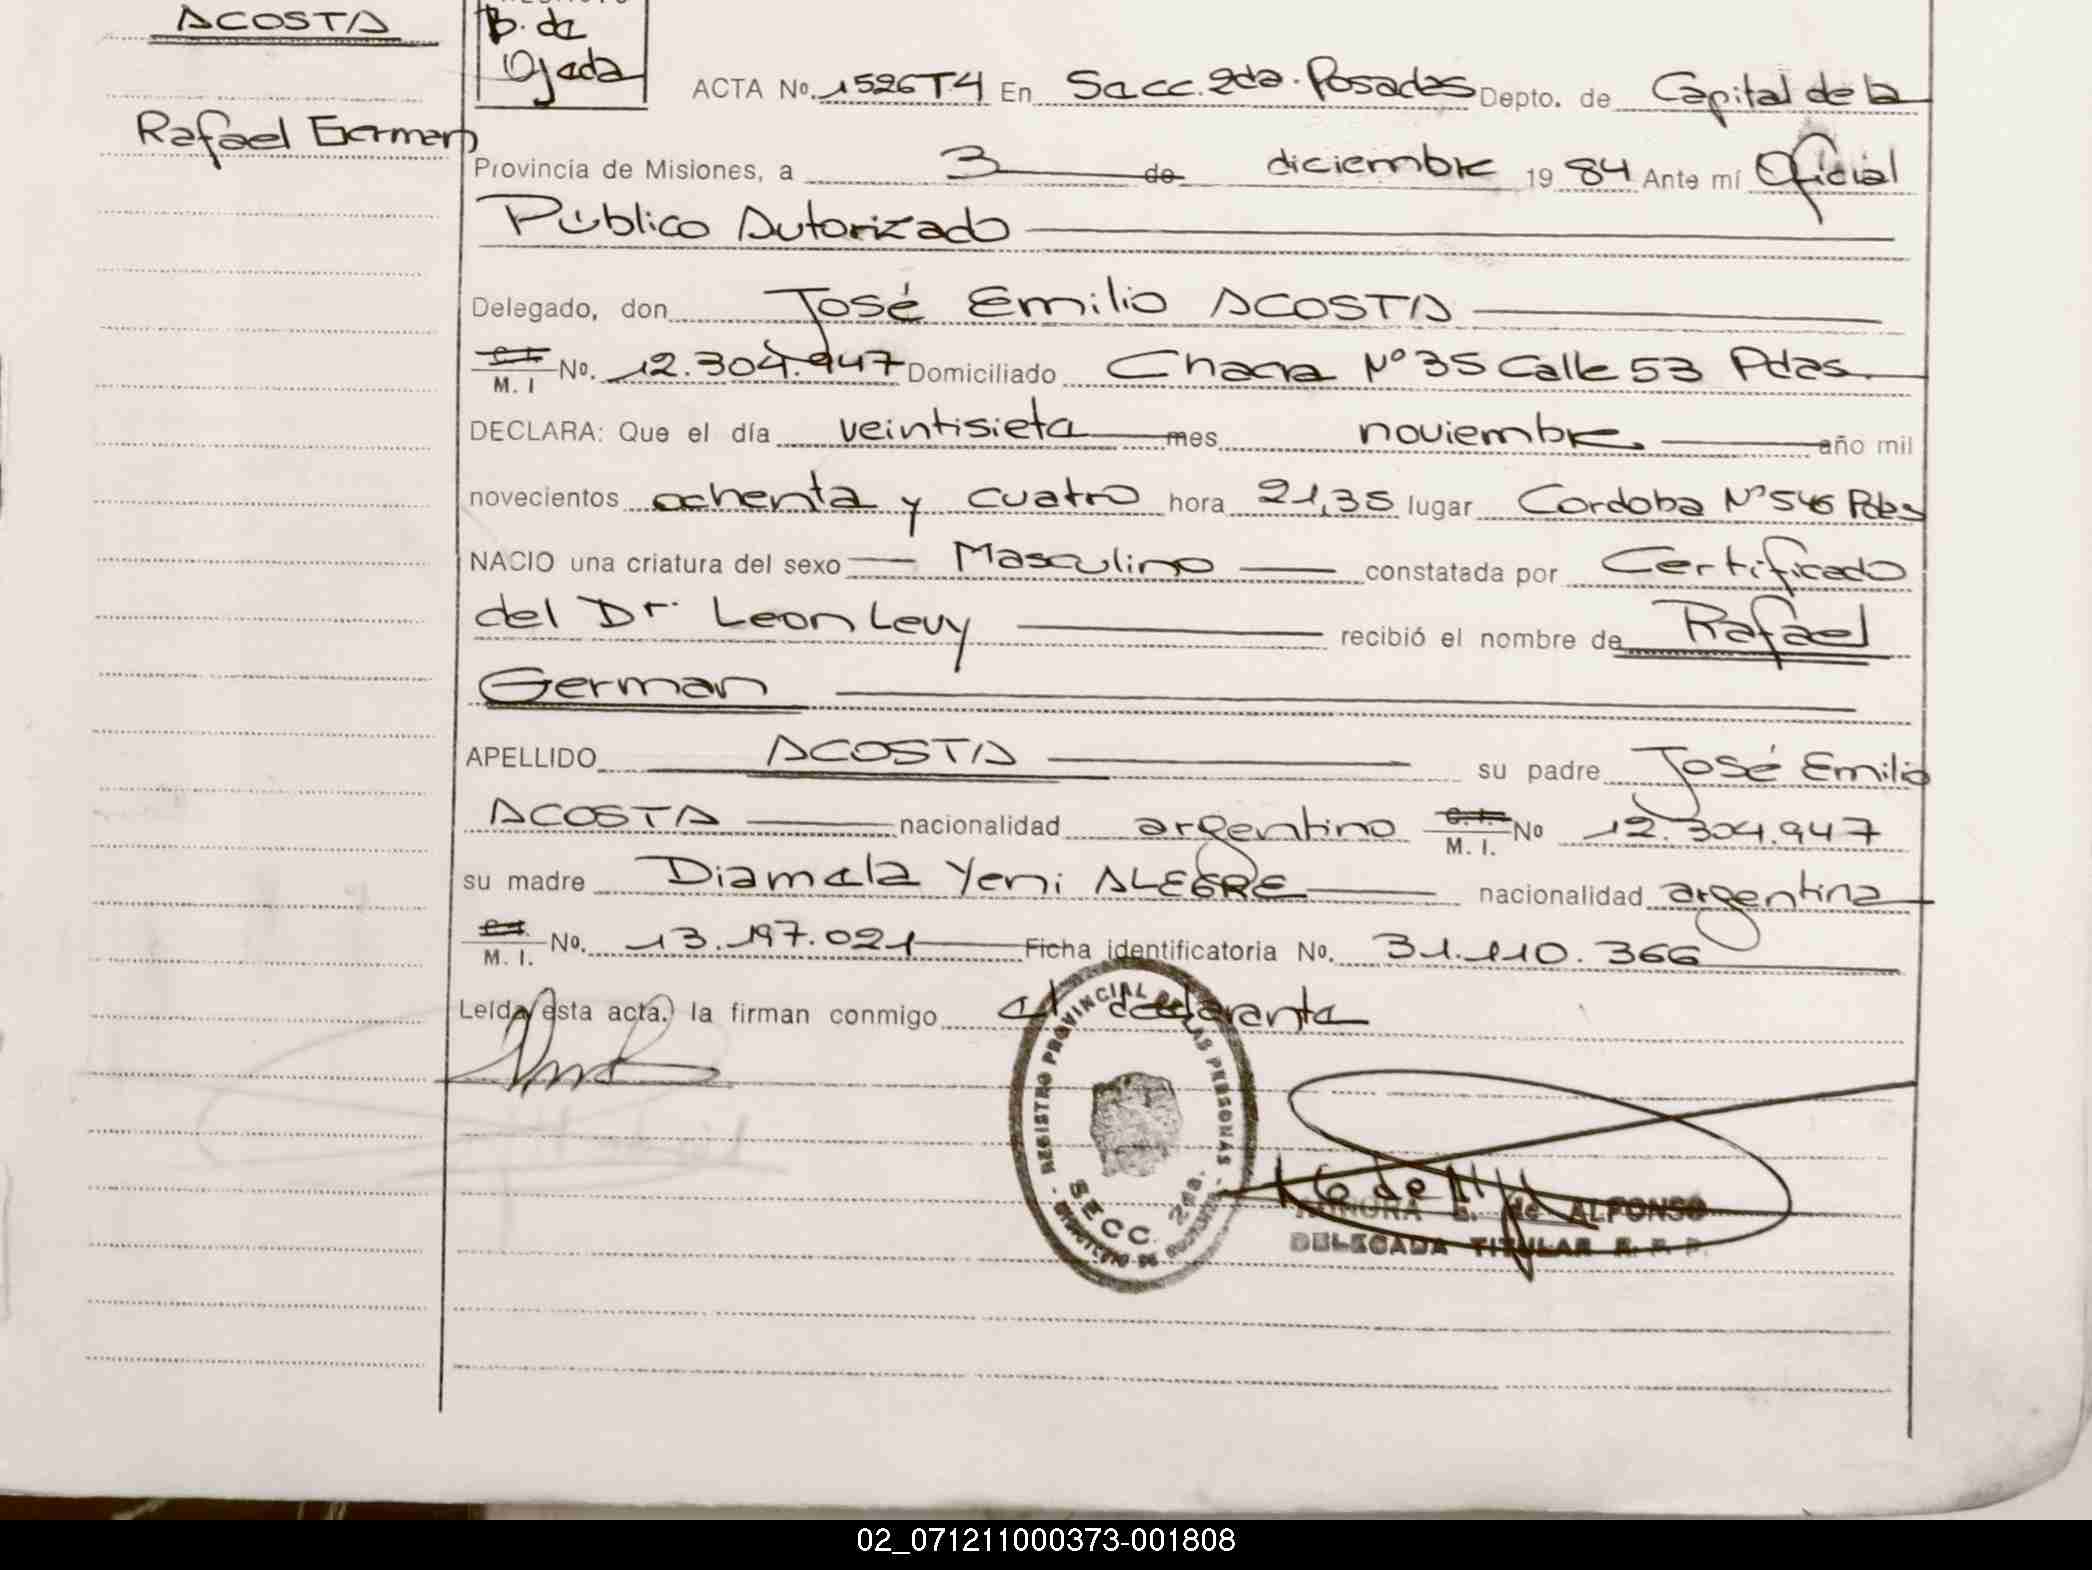 ACOSTA
B. de
Ojeda
ACTA No. 1526T4 En Secc. 2da. Posadas Depto. de Capital de la
Rafael German
Provincia de Misiones, a 3 de diciembre 19 84 Ante mí Oficial
Público Autorizado
Delegado, don José Emilio ACOSTA
C. I.
M. I No. 12.304.947 Domiciliado Chacra Nº 35 Calle 53 Pdas.
DECLARA: Que el día veintisiete mes noviembre año mil
novecientos ochenta y cuatro hora 21,35 lugar Cordoba Nº 546 Pdas
NACIO una criatura del sexo Masculino constatada por Certificado
del Dr. Leon Levy recibió el nombre de Rafael
German
APELLIDO ACOSTA su padre José Emilio
ACOSTA nacionalidad argentino C. I. M. I. No 12.304.947
su madre Diamela Yeni ALEGRE nacionalidad argentina
C. I.
M. I. No. 13.197.021 Ficha identificatoria No. 31.110.366
Leída esta acta, la firman conmigo el declarante
REGISTRO PROVINCIAL DE LAS PERSONAS
SECC. 2da.
de ALFONSO
DELEGADA TITULAR R. P. P.
02_071211000373-001808